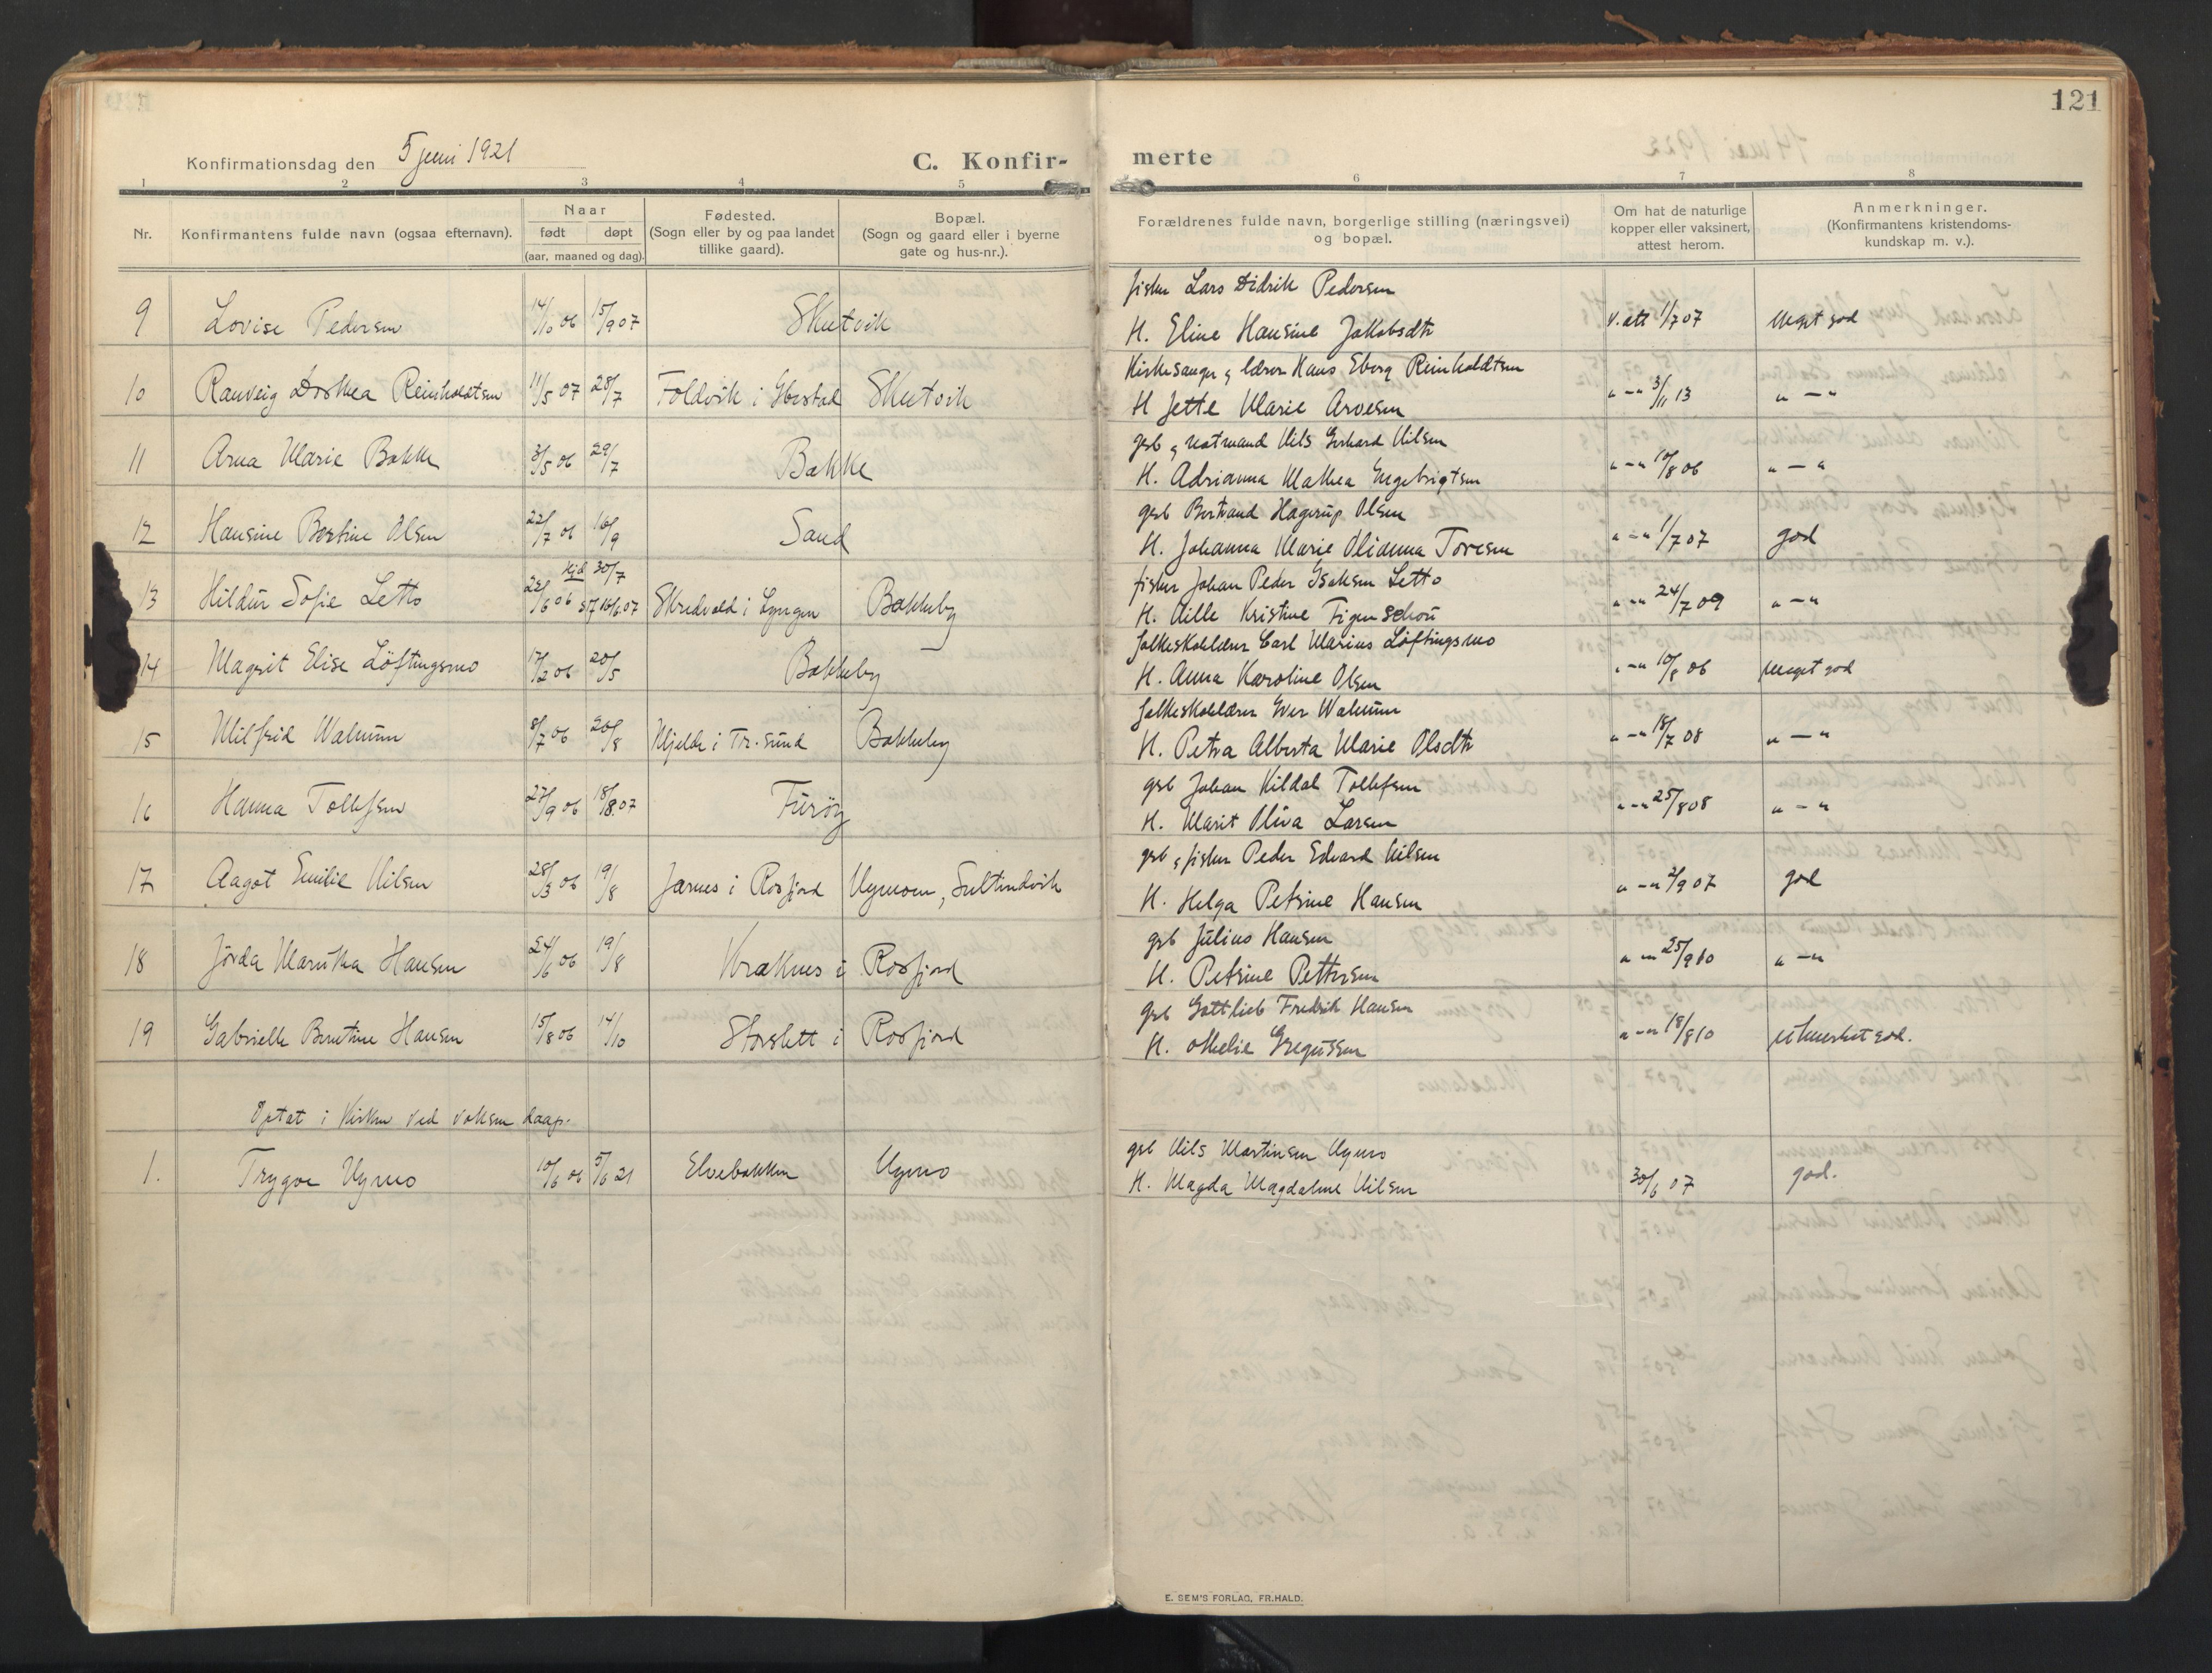 121
Konfirmationsdag den 5 juni 1921
C. Konfir- merte
1 2 3 4 5 6 7 8
Nr.
Konfirmantens fulde navn (ogsaa efternavn).
Naar
født døpt
(aar, maaned og dag).
Fødested.
(Sogn eller by og paa landet
tillike gaard).
Bopæl.
(Sogn og gaard eller i byerne
gate og hus-nr.).
Forældrenes fulde navn, borgerlige stilling (næringsvei)
og bopæl.
Om hat de naturlige
kopper eller vaksinert,
attest herom.
Anmerkninger.
(Konfirmantens kristendoms-
kundskap m. v.).
fisker Lars Didrik Pedersen
9 Lovise Pedersen 14/10 06 15/9 07 Skutvik H. Eline Hansine Jakobsdtr v. att 1/7 07 Meget god
Kirkesanger og lærer Hans Eberg Reinholdtsen
10 Ranveig Dorthea Reinholdtsen 11/5 07 28/7 Foldvik i Ibestad Skutvik H Jette Marie Arvesen " - " 3/11 13 " - "
gsb og notmand Nils Gerhard Nilsen
11 Arna Marie Bakke 3/5 06 29/7 Bakke H. Adrianna Mathea Engebrigtsen " - " 10/8 06 " - "
gsb Bertrand Hagerup Olsen
12 Hansine Bertine Olsen 22/7 06 16/9 Sand H. Johanna Marie Olianna Toresen " - " 1/7 07 god
fisker Johan Peder Isaksen Letto
13 Hildur Sofie Letto 25/6 06 hjd 30/7 st 16/6 07 Skredvold i Lyngen Bakkeby H. Nille Kristine Figenschou " - " 24/7 09 " - "
folkeskolelærer Carl Marius Löftingsmo
14 Magnit Elise Löftingsmo 17/2 06 20/5 Bakkeby H. Anna Karoline Olsen " - " 10/8 06 Meget god
folkeskolelærer Iver Walnum
15 Milfrid Walnum 8/7 06 20/8 Mjelde i Tr. sund Bakkeby H. Petra Alberta Marie Olsdtr " - " 18/7 08 " - "
gsb Johan Kildal Tollefsen
16 Hanna Tollefsen 27/9 06 18/8 07 Furöy H. Marit Oliva Larsen " - " 25/8 08 " - "
gsb og fisker Peder Edvard Nilsen
17 Aagot Emilie Nilsen 28/3 06 19/8 Jarnes i Rosfjord Nymoen, Sultindvik H. Helga Petrine Hansen " - " 2/9 07 god
gsb Julius Hansen
18 Jörda Maritha Hansen 24/6 06 19/8 Kraknes i Rosfjord H. Petrine Pettersen " - " 25/9 10 " - "
gsb Gottlieb Fredrik Hansen
19 Gabrielle Berntine Hansen 15/8 06 14/10 Storslett i Rosfjord H. Othelie Gregussen " - " 18/8 10 Utmerket god.
Optat i kirken ved voksen daap.
gsb Nils Martinsen Nymo
1. Trygve Nymo 10/6 06 5/6 21 Elvebakken Nymo H. Magda Magdalene Nilsen 30/6 07 god.
E. SEM'S FORLAG, FR.HALD.